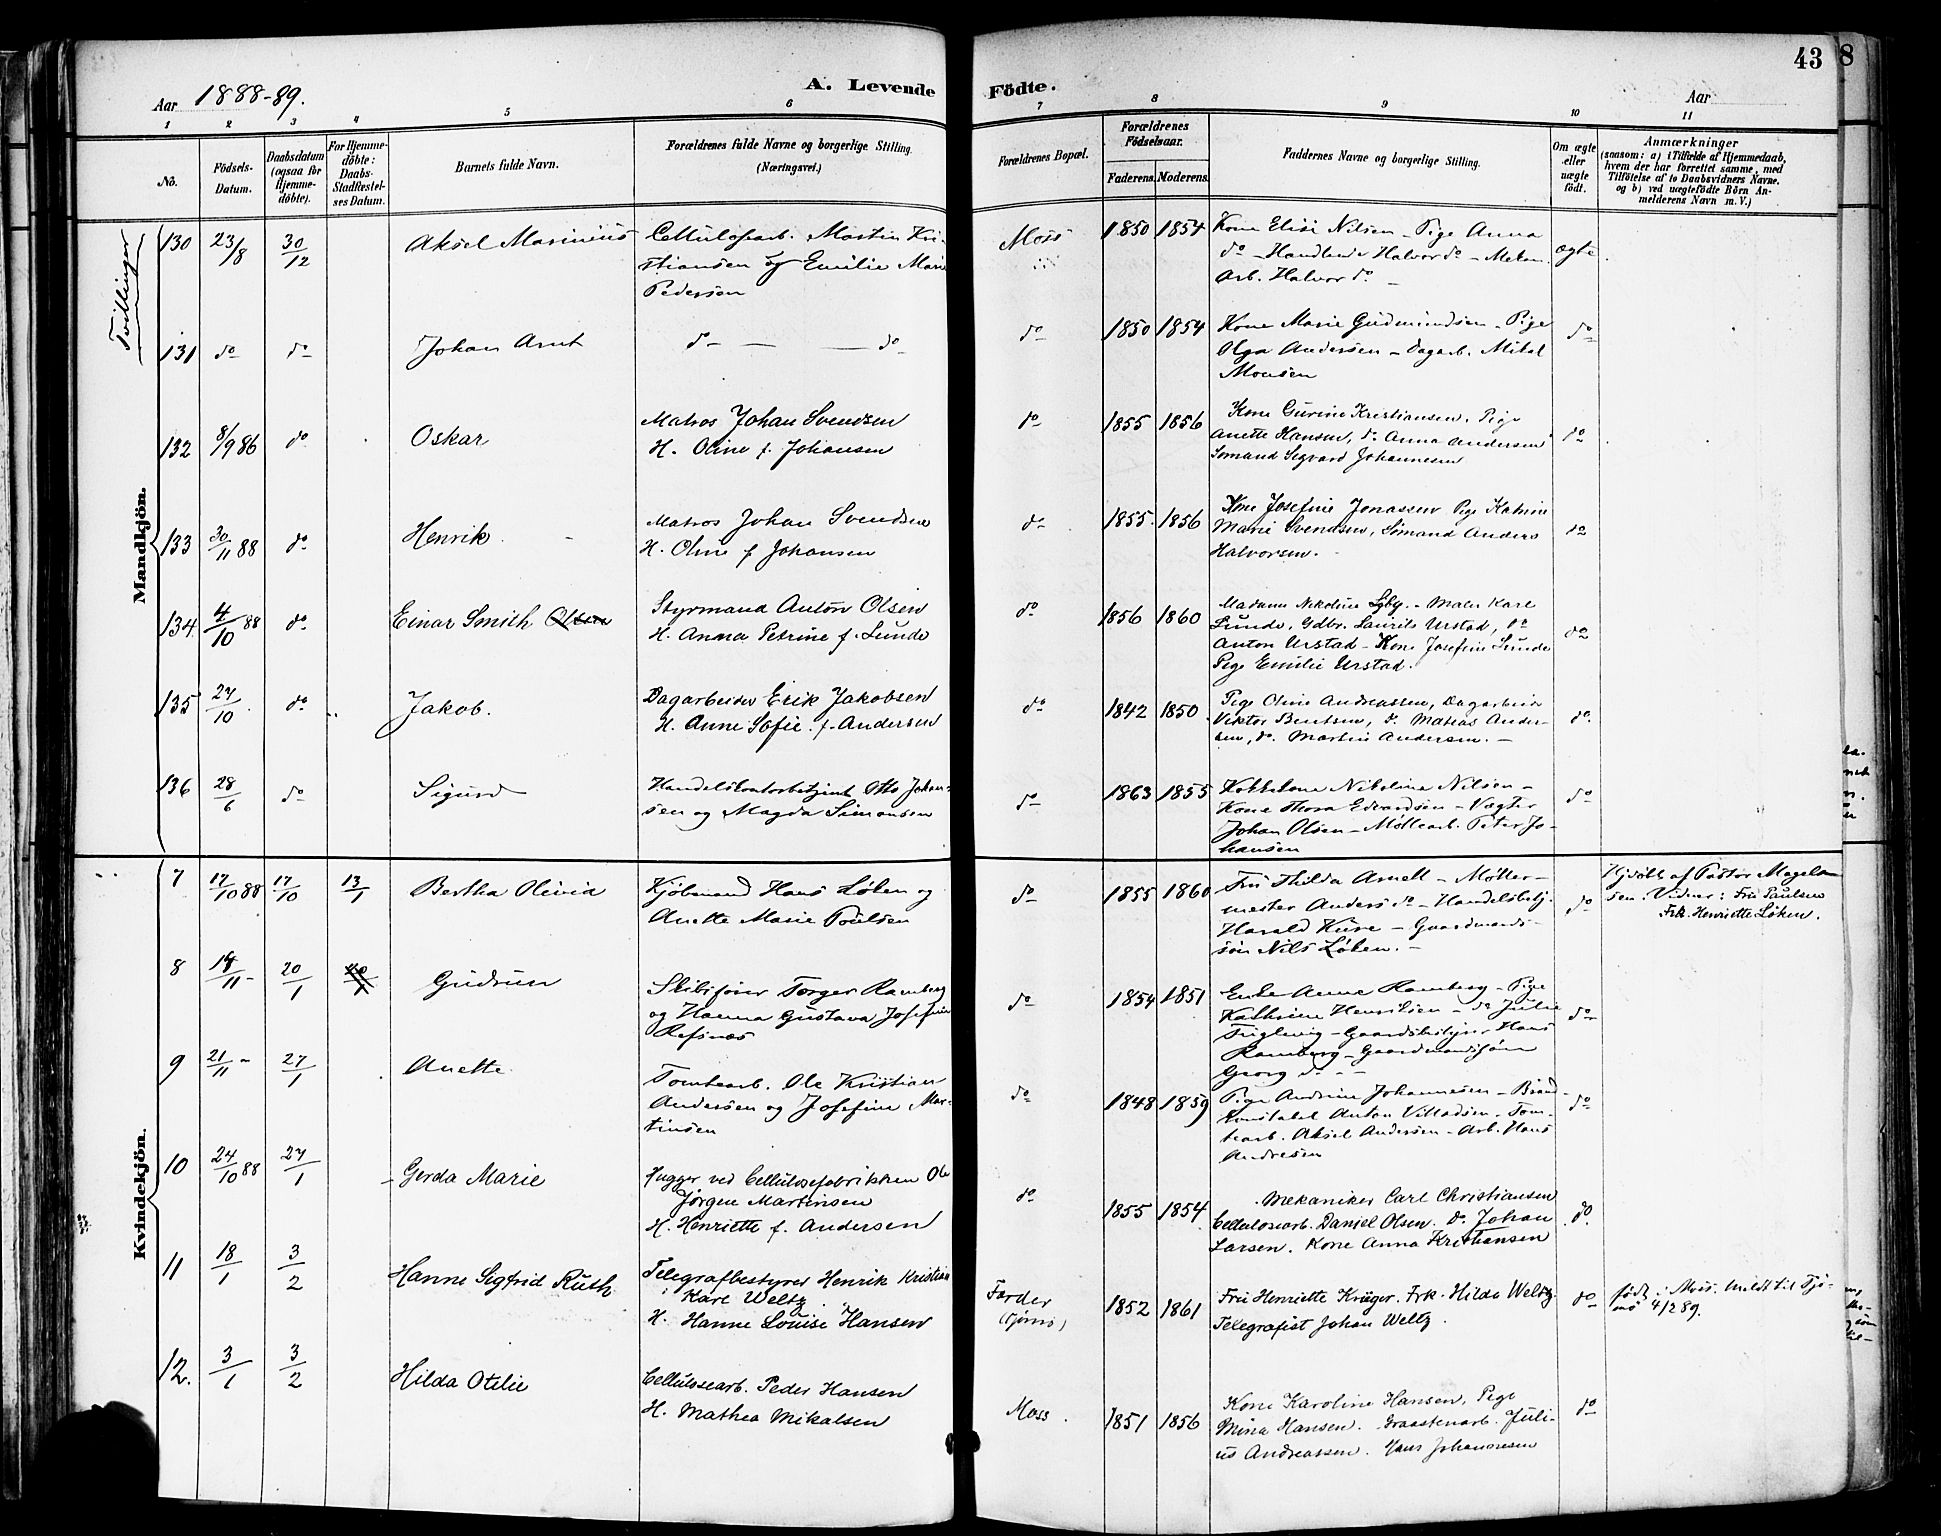 43
8
Aar 1888-89.
A. Levende
Födte.
Aar
1 2 3 4 5 6 7 8 9 10 11
No.
Födsels-
Datum.
Daabsdatum
(ogsaa för
Hjemme-
döbte).
For Hjemme-
döbte:
Daabs-
Stadfæstel-
ses Datum.
Barnets fulde Navn.
Forældrenes fulde Navne og borgerlige Stilling.
(Næringsvei.)
Forældrenes Bopæl.
Forældrenes
Födselsaar.
Faderens.
Moderens.
Faddernes Navne og borgerlige Stilling.
Om ægte
eller
uægte
födt.
Anmærkninger
(saasom: a) i Tilfælde af Hjemmedaab,
hvem der har forrettet samme, med
Tilföielse af to Daabsvidners Navne,
og b) ved uægtefödte Börn An-
melderens Navn m. V.)
Tvillinger
Mandkjön.
130 23/8 30/12 Aksel Marinius
Cellulosearb. Martin Kri-
stiansen og Emilie Marie
Pedersen
Moss 1850 1854
Kone Elise Nilsen - Pige Anna
do - Handlende Halvor do - Mekan.
Arb. Halvor do -
ægte
131 do do Johan Arnt
do — — do
do 1850 1854
Kone Marie Gudmundsen - Pige
Olga Andersen - Dagarb. Mikal
Monsen
do
132 8/9 86 do Oskar
Matros Johan Svendsen
H. Oline f. Johansen
do 1855 1856
Kone Gurine Kristiansen, Pige
Anette Hansen, do Anna Andersen
Sömand Sigvard Johannesen
do
133 30/11 88 do Henrik
Matros Johan Svendsen
H. Oline f Johansen
do 1855 1856
Kone Josefine Jonassen Pige Katrine
Marie Svendsen, Sömand Anders
Halvorsen.
do
134. 4/10 88 do Einar Smith Olsen
Styrmand Anton Olsen
H. Anna Petrine f. Lunde
do 1856 1860
Madame Nikoline Lyby. - Maler Karl
Lunde, Gdbr. Laurits Urstad, do
Anton Urstad - Kone Josefine Lunde
Pige Emilie Urstad.
do
135 27/10 do Jakob.
Dagarbeider Erik Jakobsen
H. Anne Sofie f. Andersen
do 1842 1850
Pige Oline Andreassen, Dagarbeider
Viktor Bentsen, do. Matias Ander-
sen, do. Martin Andersen. -
do.
136 28/6 do Sigurd
Handelskontorbetjent Otto Johan-
sen og Magda Simonsen
do 1863 1855
Nikoline Nilsen -
Kone Thora Edvardsen - Vægter
Johan Olsen - Møllearb. Peter Jo-
hansen
do
Kvindekjön.
7 17/10 88 17/10 13/1 Bertha Olivia
Kjøbmand Hans Løken og
Anette Marie Poulsen
do 1855 1860
Fru Thilda Arnell - Møller-
mester Anders do - Handelsbetj.
Harald Kure - Gaardmands-
søn Nils Løken. -
do
Hjdøbt af Pastor Magels-
sen. Vidner: Fru Paulsen
Frk. Henriette Løken.
8 19/11 - 20/1 Gudrun
Skibsfører Torger Ramberg
og Hanna Gustava Josefine
Refsnæs
do 1854 1851
Enke Anne Ramberg - Pige
Kathrine Henriksen - do Julie
- Gaardbestyrer Hans
Ramberg - Gaardmandssøn
Georg do - -
do
9 21/11 - 27/1 Anette
Tomtearb. Ole Kristian
Andersen og Josefine Mar-
tinsen
do 1848 1859
Pige Andrine Johannesen - Brand-
konstabel Anton Villadsen - Tom-
tearb. Aksel Andersen - Arb. Hans
Andresen
do
10 24/10 88 27/1 Gerda Marie
Hugger ved Cellulosefabrikken Ole
Jørgen Martinsen
H. Henriette f. Andersen
do 1855 1854
Mekaniker Carl Christiansen
Cellulosearb. Daniel Olsen. do Johan
Larsen. Kone Anna Kristiansen
do.
11 18/1 3/2 Hanne Sigfrid Ruth
Telegrafbestyrer Henrik Kristian
Karl Weltz
H. Hanne Louise Hansen
Færder
(Tjømø)
1852 1861
Fru Henriette Krüger. Frk. Hilda Weltz.
Telegrafist Johan Weltz.
do
født i Moss. meldt til Tjø-
mø 4/2 89.
12. 3/1 3/2 Hilda Otilie
Cellulosearb. Peder Hansen
H. Mathea Mikalsen
Moss. 1851 1856
Kone Karoline Hansen, Pige
Mina Hansen. Graastenarb. Juli-
us Andreassen. Hans Johannesen
do